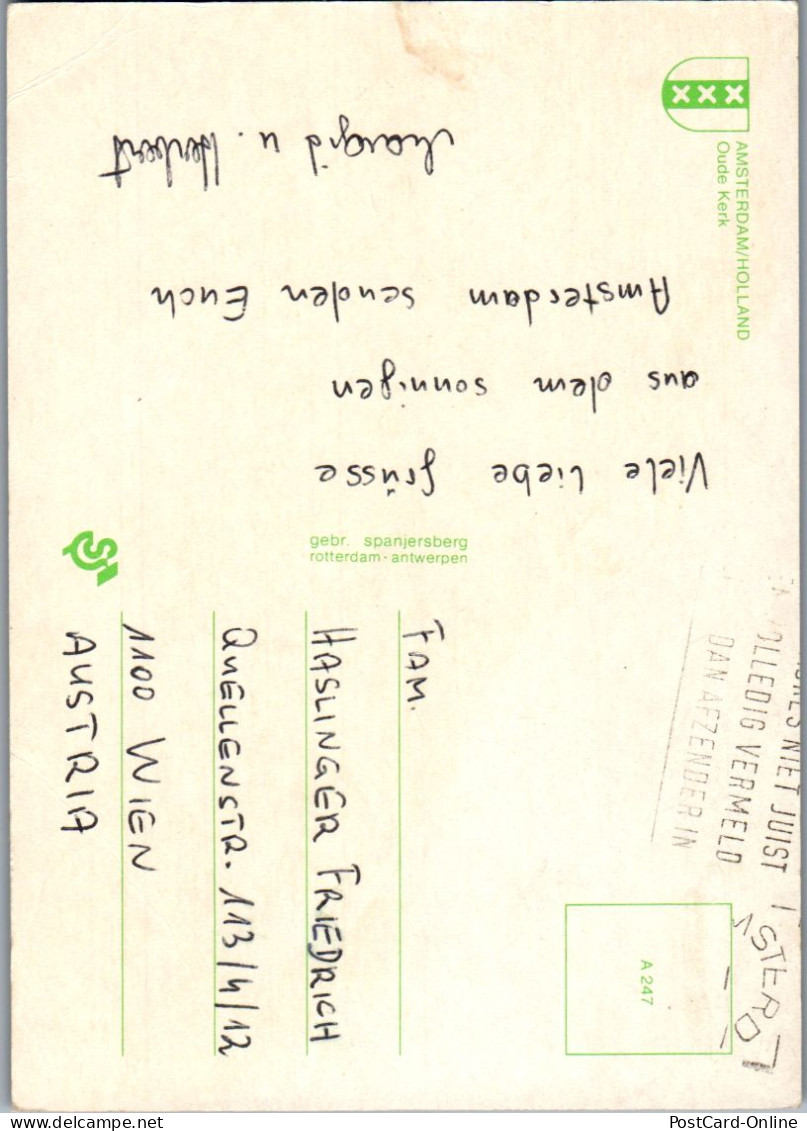 AMSTERDAM/HOLLAND
Oude Kerk
Viele liebe Grüsse
aus dem sonnigen
Amsterdam senden Euch
Margid u. Herbert
gebr. spanjersberg
rotterdam-antwerpen
NIET JUIST
OLLEDIG VERMELD
DAN AFZENDER IN
A 247
FAM.
HASLINGER FRIEDRICH
QUELLENSTR. 113/4/12
1100 WIEN
AUSTRIA
www.delcampe.net
PostCard-Online